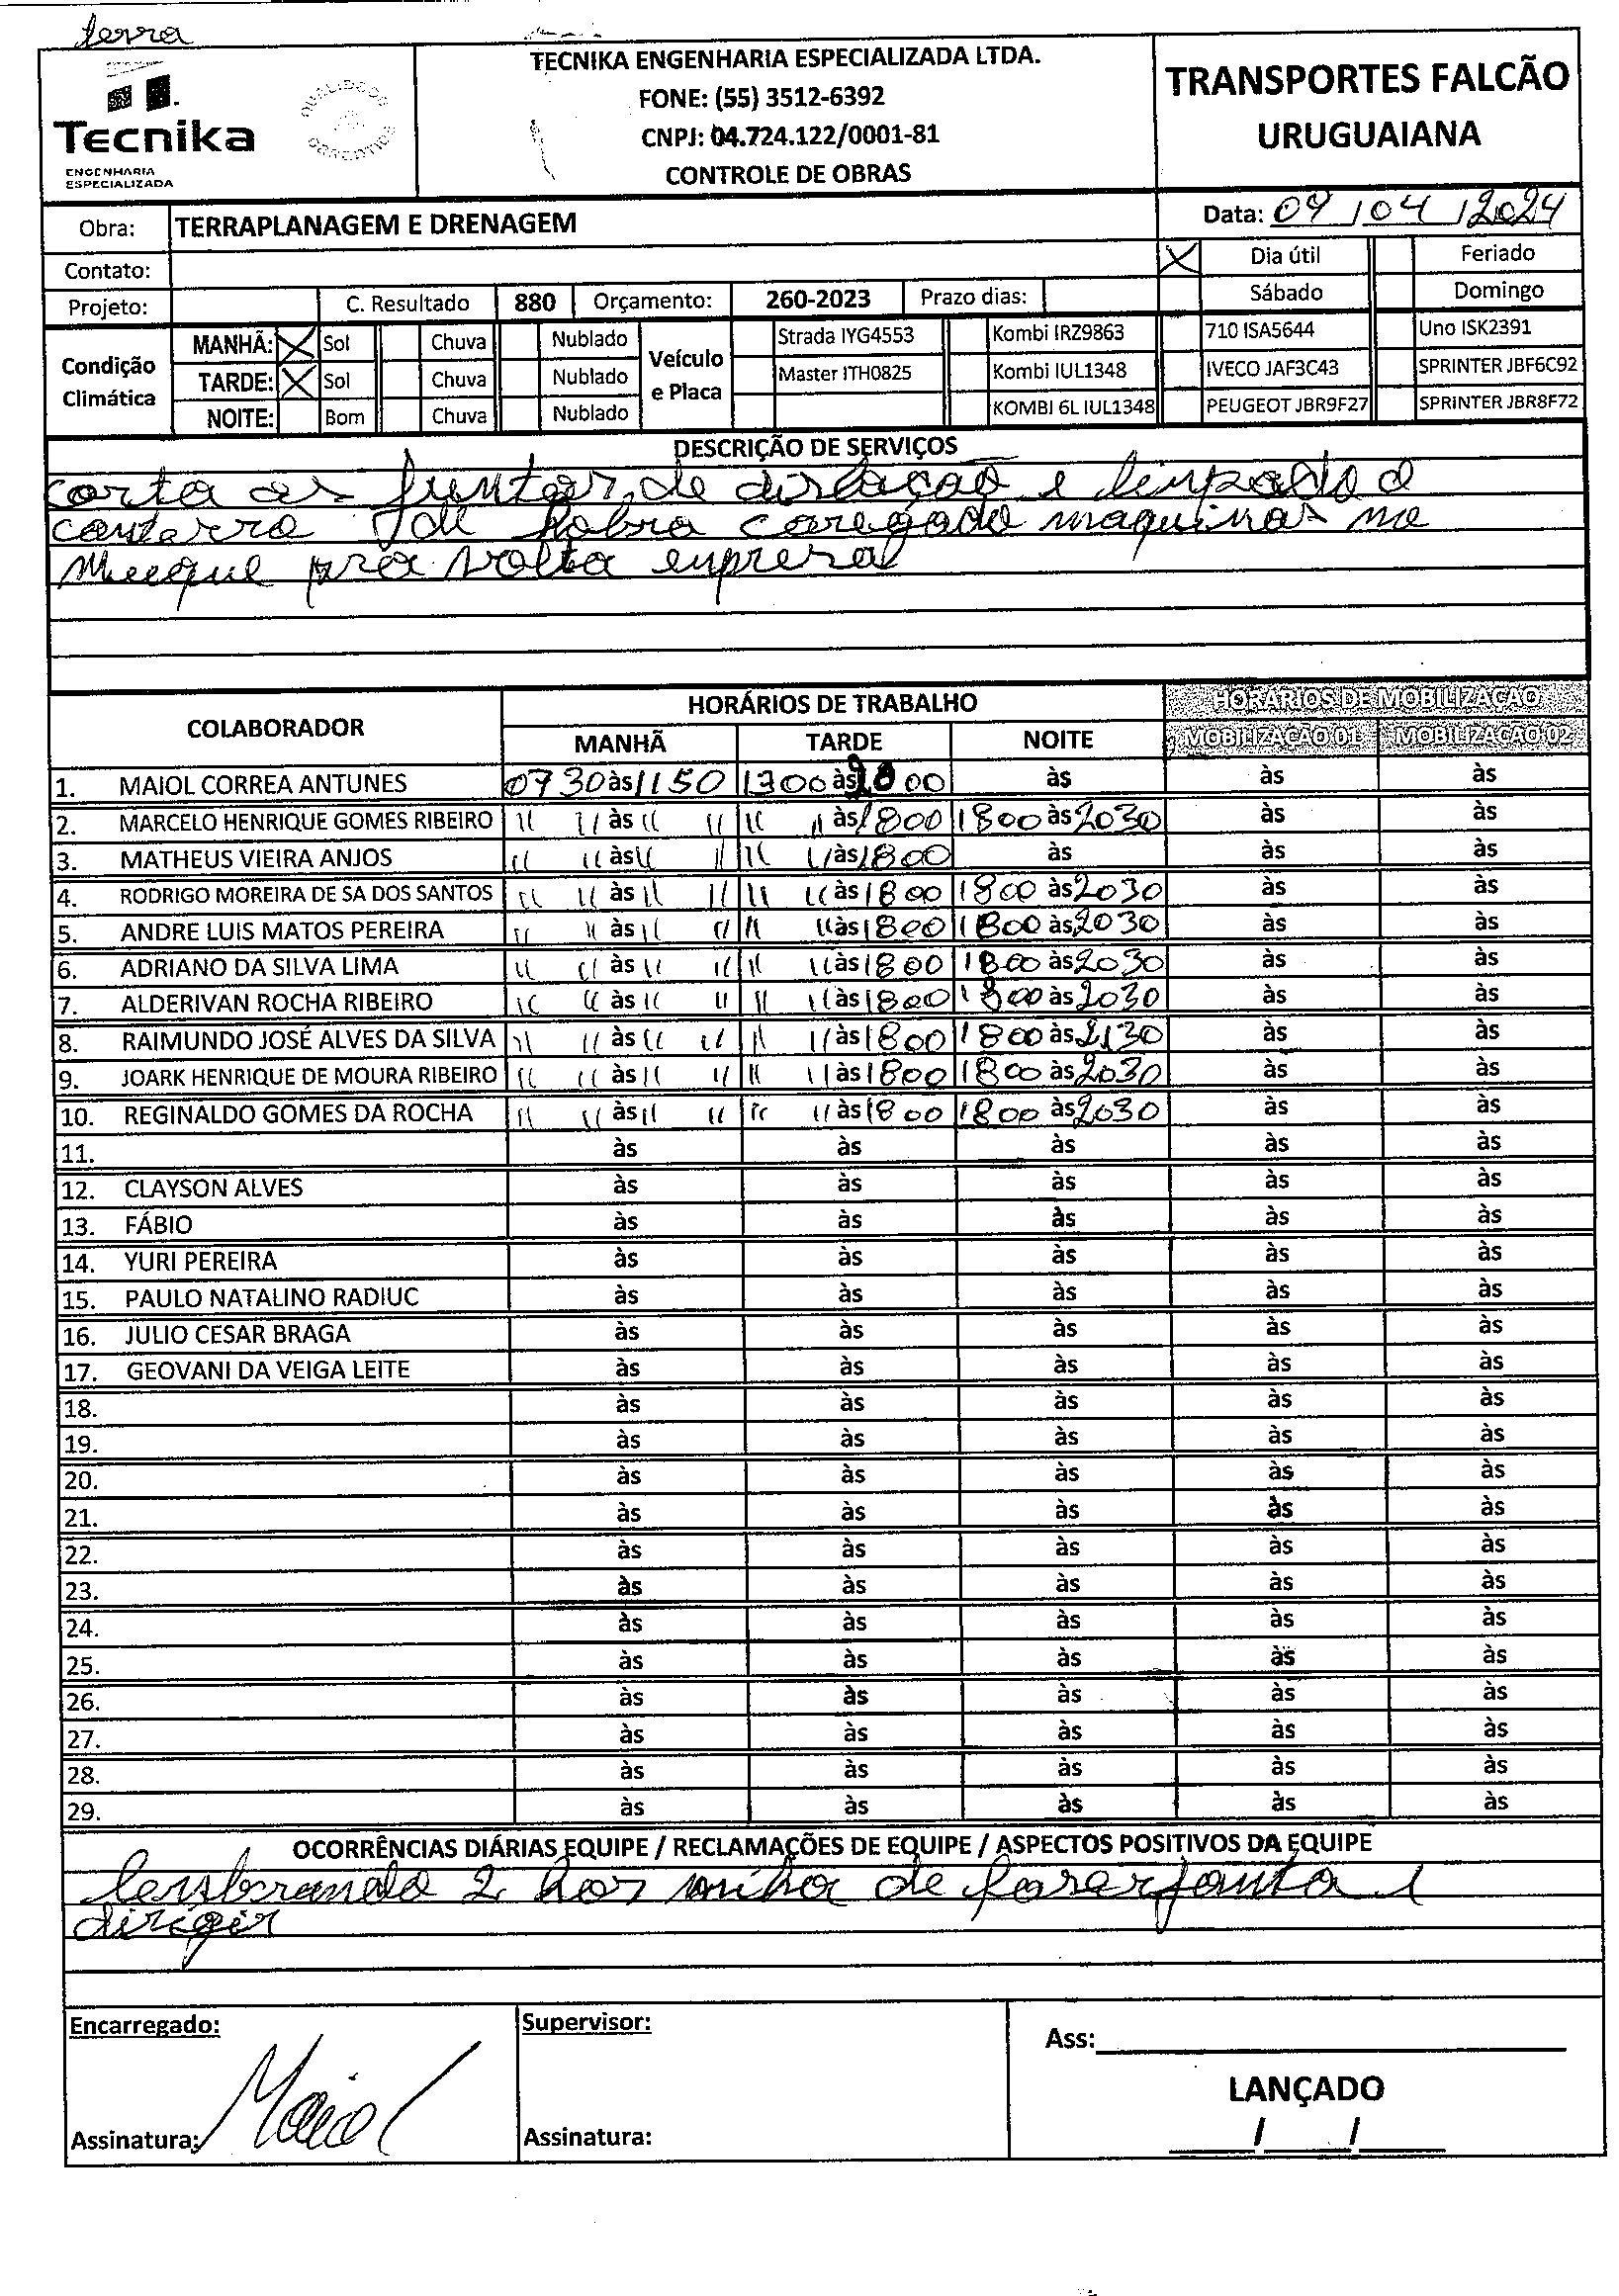 terra
Tecnika
ENGENHARIA
ESPECIALIZADA
TECNIKA ENGENHARIA ESPECIALIZADA LTDA.
FONE: (55) 3512-6392
CNPJ: 04.724.122/0001-81
CONTROLE DE OBRAS
TRANSPORTES FALCÃO
URUGUAIANA
Obra: TERRAPLANAGEM E DRENAGEM
Data: 09/04/2024
Contato:
X Dia útil Feriado
Projeto: C. Resultado 880 Orçamento: 260-2023 Prazo dias: Sábado Domingo
Condição Climática
MANHÃ: X Sol Chuva Nublado
TARDE: X Sol Chuva Nublado
NOITE: Bom Chuva Nublado
Veículo e Placa
Strada IYG4553 Kombi IRZ9863 710 ISA5644 Uno ISK2391
Master ITH0825 Kombi IUL1348 IVECO JAF3C43 SPRINTER JBF6C92
KOMBI 6L IUL1348 PEUGEOT JBR9F27 SPRINTER JBR8F72
DESCRIÇÃO DE SERVIÇOS
corta as juntas de dilação e limpado o
canterro de hobra caregado maquinas no
Muque pra volta empresa
COLABORADOR HORÁRIOS DE TRABALHO HORÁRIOS DE MOBILIZAÇÃO
MANHÃ TARDE NOITE MOBILIZAÇÃO 01 MOBILIZAÇÃO 02
1. MAIOL CORREA ANTUNES 0730 às 1150 1300 às 1800 às às às
2. MARCELO HENRIQUE GOMES RIBEIRO " " às " " " " às 1800 1800 às 2030 às às
3. MATHEUS VIEIRA ANJOS " " às " " " " às 1800 às às às
4. RODRIGO MOREIRA DE SA DOS SANTOS " " às " " " " às 1800 1800 às 2030 às às
5. ANDRE LUIS MATOS PEREIRA " " às " " " " às 1800 1800 às 2030 às às
6. ADRIANO DA SILVA LIMA " " às " " " " às 1800 1800 às 2030 às às
7. ALDERIVAN ROCHA RIBEIRO " " às " " " " às 1800 1800 às 2030 às às
8. RAIMUNDO JOSÉ ALVES DA SILVA " " às " " " " às 1800 1800 às 2130 às às
9. JOARK HENRIQUE DE MOURA RIBEIRO " " às " " " " às 1800 1800 às 2030 às às
10. REGINALDO GOMES DA ROCHA " " às " " " " às 1800 1800 às 2030 às às
11. às às às às às
12. CLAYSON ALVES às às às às às
13. FÁBIO às às às às às
14. YURI PEREIRA às às às às às
15. PAULO NATALINO RADIUC às às às às às
16. JULIO CESAR BRAGA às às às às às
17. GEOVANI DA VEIGA LEITE às às às às às
18. às às às às às
19. às às às às às
20. às às às às às
21. às às às às às
22. às às às às às
23. às às às às às
24. às às às às às
25. às às às às às
26. às às às às às
27. às às às às às
28. às às às às às
29. às às às às às
OCORRÊNCIAS DIÁRIAS EQUIPE / RECLAMAÇÕES DE EQUIPE / ASPECTOS POSITIVOS DA EQUIPE
2 de
dirigir
Encarregado: Supervisor: Ass:
Maiol
LANÇADO
Assinatura: Assinatura: / /